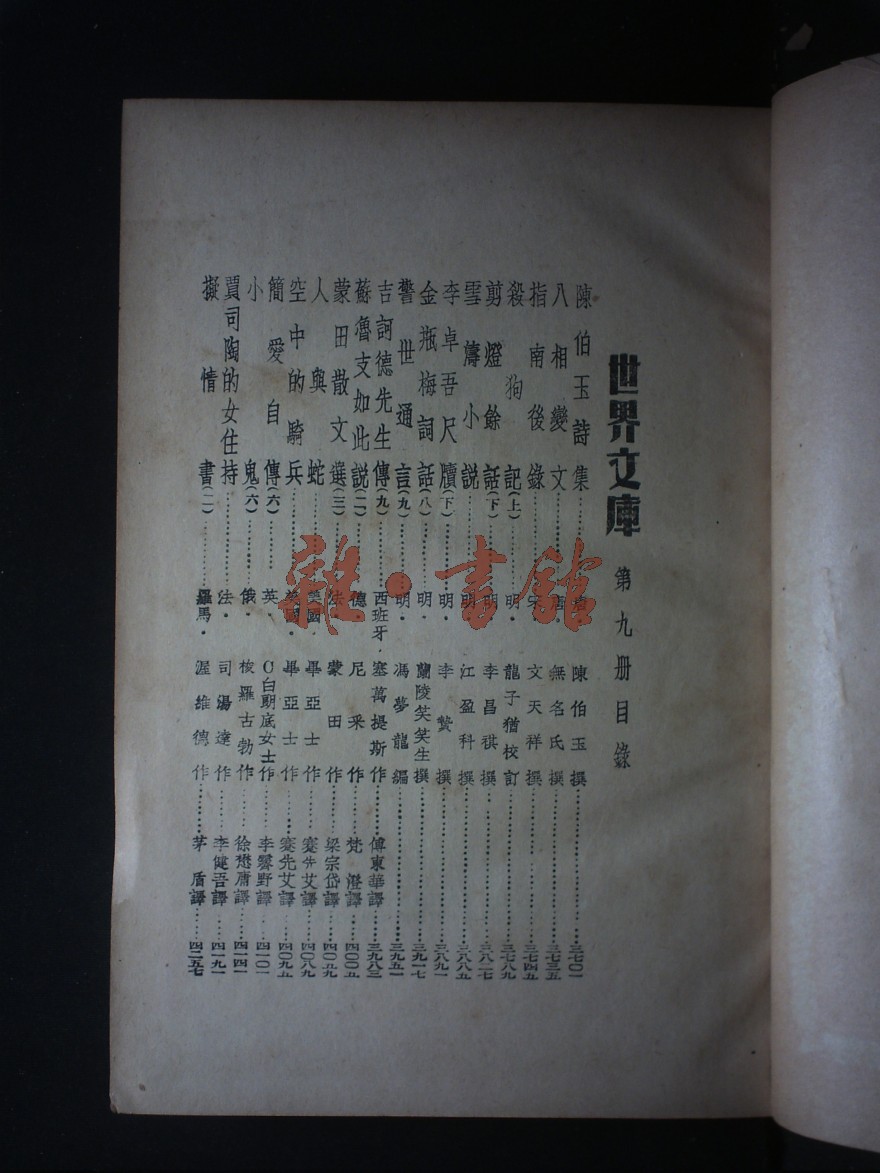 世界文庫 第九册目錄
陳伯玉詩集……唐・陳伯玉撰……三七〇一
八相變文……唐・無名氏撰……三七三五
指南後錄……宋・文天祥撰……三七四五
殺狗記(上)……明・龍子猶校訂……三七八九
剪燈餘話(下)……明・李昌祺撰……三八二七
雪濤小説……明・江盈科撰……三八八五
李卓吾尺牘(下)……明・李贄撰……三八九一
金瓶梅詞話(八)……明・蘭陵笑笑生撰……三九一七
警世通言(九)……明・馮夢龍編……三九五一
吉訶德先生傳(九)……西班牙・塞萬提斯作……傅東華譯……三九八三
蘇魯支如此説(二)……德・尼采作……梵澄譯……四〇〇五
蒙田散文選(三)……法・蒙田作……梁宗岱譯……四〇五九
人與蛇……美國・畢亞士作……蹇先艾譯……四〇八九
空中的騎兵……美國・畢亞士作……蹇先艾譯……四〇九五
簡愛自傳(六)……英・C白朗底女士作……李霽野譯……四一〇一
小鬼(六)……俄・梭羅古勃作……徐懋庸譯……四一四一
賈司陶的女住持……法・司湯達作……李健吾譯……四一九一
擬情書(二)……羅馬・渥維德作……茅盾譯……四二五七
雜・書館